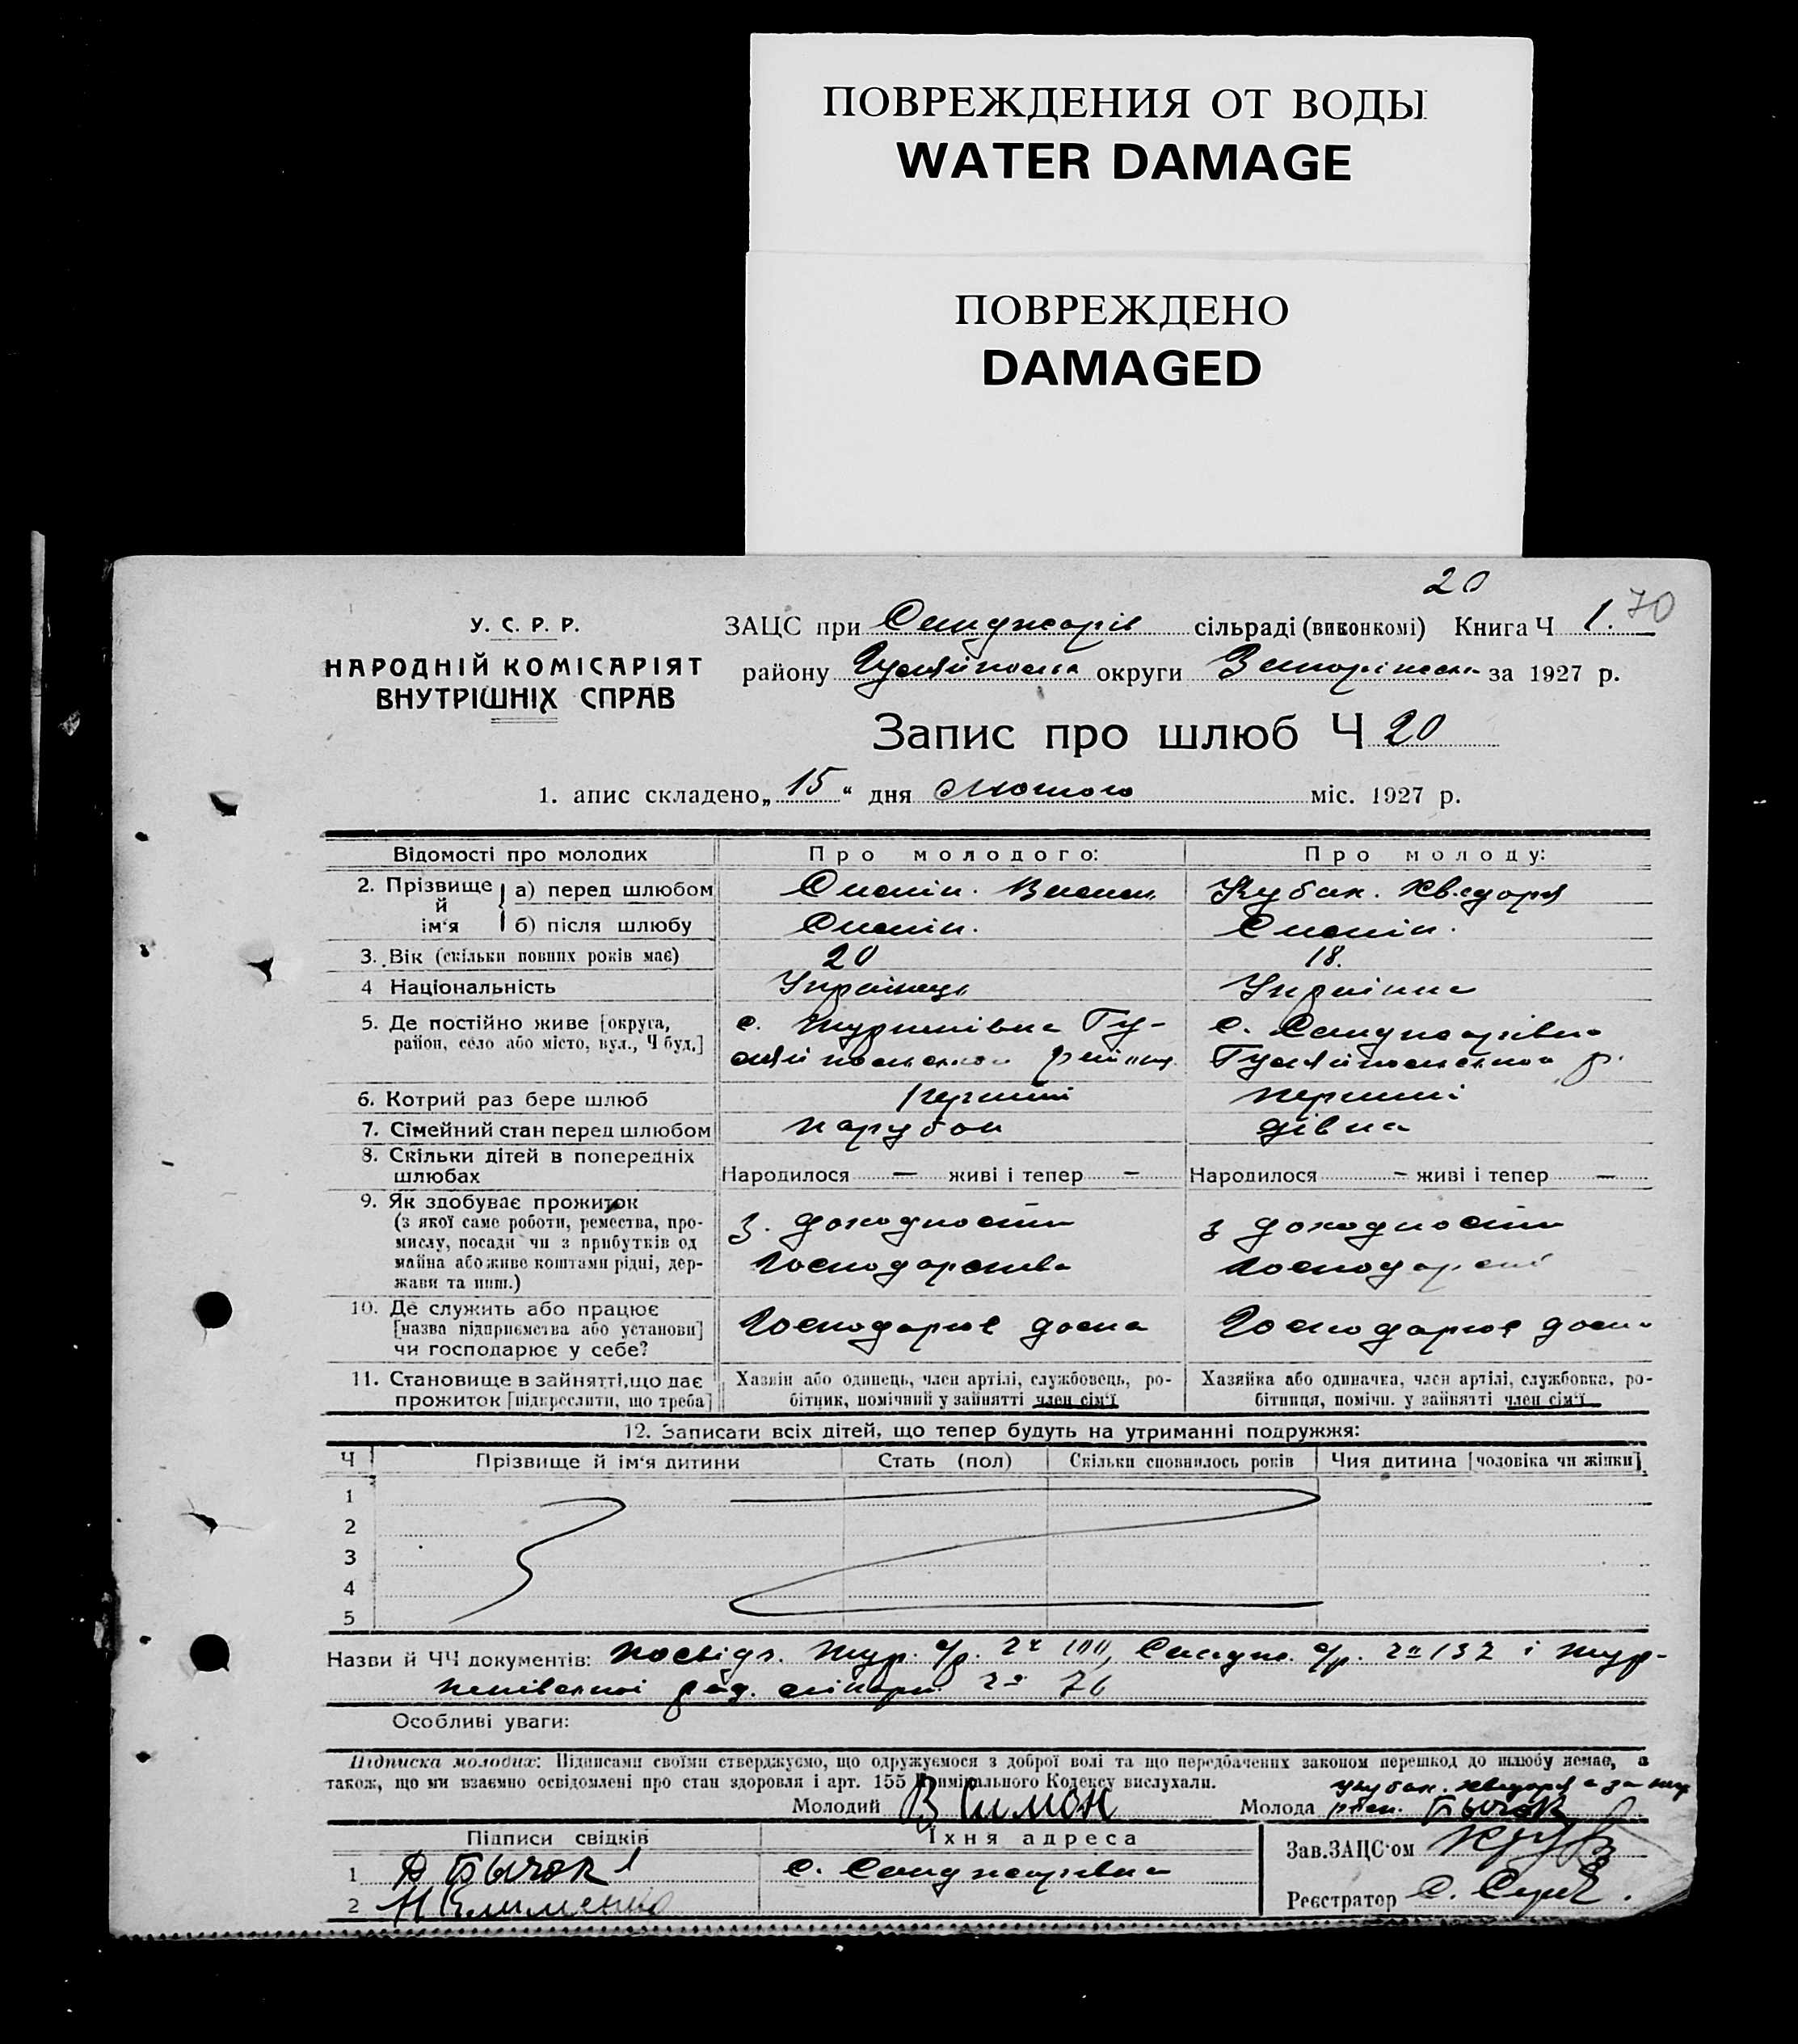 ПОВРЕЖДЕНИЯ ОТ ВОДЫ
WATER DAMAGE
ПОВРЕЖДЕНО
DAMAGED
20
70
У. С. Р. Р.
НАРОДНІЙ КОМІСАРІЯТ
ВНУТРІШНІХ СПРАВ
ЗАЦС при Санджарів сільраді (виконкомі) Книга Ч 1.
району Гуляйпольск округи Запорізьк за 1927 р.
Запис про шлюб Ч 20
1. апис складено „ 15 “ дня Лютого міс. 1927 р.
Відомості про молодих Про молодого: Про молоду:
2. Прізвище й ім‘я
а) перед шлюбом Кубак. Хведора
б) після шлюбу
3. Вік (скільки повних років має) 20 18.
4 Національність Українець Українка
5. Де постійно живе [округа, с. Гу- с. Санджарівка
район, село або місто, вул., Ч буд.] ляйпольського району Гуляйпольського р.
6. Котрий раз бере шлюб перший перший
7. Сімейний стан перед шлюбом парубок дівка
8. Скільки дітей в попередніх
шлюбах Народилося — живі і тепер — Народилося — живі і тепер —
9. Як здобуває прожиток
(з якої саме роботи, ремества, про- з. доходности з доходности
мислу, посади чи з прибутків од
майна або живе коштами рідні, дер- господарства господарст
жави та инш.)
10. Де служить або працює
[назва підприємства або установи] Господарює дома Господарює дома
чи господарює у себе?
11. Становище в зайнятті, що дає Хазяїн або одинець, член артілі, службовець, ро- Хазяйка або одиначка, член артілі, службовка, ро-
прожиток [підкреслити, що треба] бітник, помічний у зайнятті член сім‘ї бітниця, помічн. у зайнятті член сім‘ї
12. Записати всіх дітей, що тепер будуть на утриманні подружжя:
Ч Прізвище й ім‘я дитини Стать (пол) Скільки сповнилось років Чия дитина [чоловіка чи жінки]
1
2
3
4
5
Назви й ЧЧ документів: посвідч. с/р. Сандж. с/р. 132 і
рад. 76
Особливі уваги:
Підписка молодих: Підписами своїми стверджуємо, що одружуємося з доброї волі та що передбачених законом перешкод до шлюбу немає, а
також, що ми взаємно освідомлені про стан здоров‘я і арт. 155 Кримінального Кодексу вислухали.
Кубак. Хведора а за неї
Молодий В Симон Молода Бычок
Підписи свідків Їхня адреса
1 Бычок с. Санджарівка
2 Н Клименко
Зав. ЗАЦС‘ом
Реєстратор С.